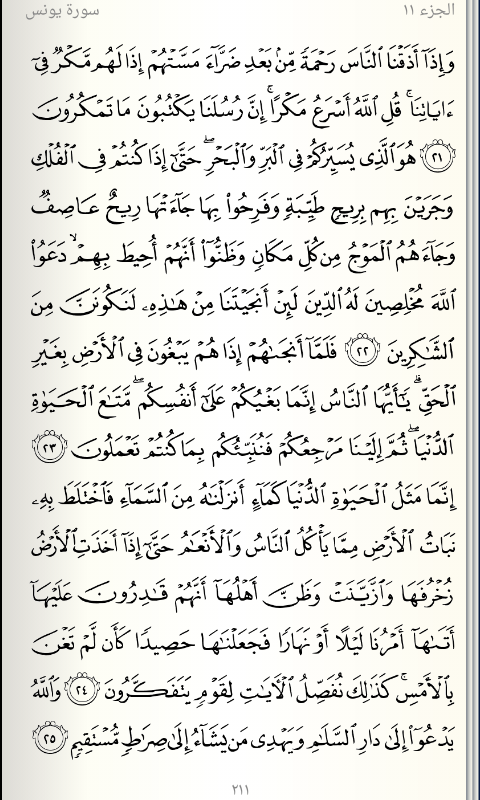 الجزء ١١
سورة يونس
وَإِذَآ أَذَقْنَا ٱلنَّاسَ رَحْمَةً مِّنۢ بَعْدِ ضَرَّآءَ مَسَّتْهُمْ إِذَا لَهُم مَّكْرٌ فِىٓ
ءَايَاتِنَا ۚ قُلِ ٱللَّهُ أَسْرَعُ مَكْرًا ۚ إِنَّ رُسُلَنَا يَكْتُبُونَ مَا تَمْكُرُونَ
٢١ هُوَ ٱلَّذِى يُسَيِّرُكُمْ فِى ٱلْبَرِّ وَٱلْبَحْرِ ۖ حَتَّىٰٓ إِذَا كُنتُمْ فِى ٱلْفُلْكِ
وَجَرَيْنَ بِهِم بِرِيحٍ طَيِّبَةٍ وَفَرِحُوا۟ بِهَا جَآءَتْهَا رِيحٌ عَاصِفٌ
وَجَآءَهُمُ ٱلْمَوْجُ مِن كُلِّ مَكَانٍ وَظَنُّوٓا۟ أَنَّهُمْ أُحِيطَ بِهِمْ ۙ دَعَوُا۟
ٱللَّهَ مُخْلِصِينَ لَهُ ٱلدِّينَ لَئِنْ أَنجَيْتَنَا مِنْ هَـٰذِهِۦ لَنَكُونَنَّ مِنَ
ٱلشَّـٰكِرِينَ ٢٢ فَلَمَّآ أَنجَىٰهُمْ إِذَا هُمْ يَبْغُونَ فِى ٱلْأَرْضِ بِغَيْرِ
ٱلْحَقِّ ۗ يَـٰٓأَيُّهَا ٱلنَّاسُ إِنَّمَا بَغْيُكُمْ عَلَىٰٓ أَنفُسِكُم ۖ مَّتَـٰعَ ٱلْحَيَوٰةِ
ٱلدُّنْيَا ۖ ثُمَّ إِلَيْنَا مَرْجِعُكُمْ فَنُنَبِّئُكُم بِمَا كُنتُمْ تَعْمَلُونَ ٢٣
إِنَّمَا مَثَلُ ٱلْحَيَوٰةِ ٱلدُّنْيَا كَمَآءٍ أَنزَلْنَـٰهُ مِنَ ٱلسَّمَآءِ فَٱخْتَلَطَ بِهِۦ
نَبَاتُ ٱلْأَرْضِ مِمَّا يَأْكُلُ ٱلنَّاسُ وَٱلْأَنْعَـٰمُ حَتَّىٰٓ إِذَآ أَخَذَتِ ٱلْأَرْضُ
زُخْرُفَهَا وَٱزَّيَّنَتْ وَظَنَّ أَهْلُهَآ أَنَّهُمْ قَـٰدِرُونَ عَلَيْهَآ
أَتَىٰهَآ أَمْرُنَا لَيْلًا أَوْ نَهَارًا فَجَعَلْنَـٰهَا حَصِيدًا كَأَن لَّمْ تَغْنَ
بِٱلْأَمْسِ ۚ كَذَٰلِكَ نُفَصِّلُ ٱلْـَٔايَـٰتِ لِقَوْمٍ يَتَفَكَّرُونَ ٢٤ وَٱللَّهُ
يَدْعُوٓا۟ إِلَىٰ دَارِ ٱلسَّلَـٰمِ وَيَهْدِى مَن يَشَآءُ إِلَىٰ صِرَٰطٍ مُّسْتَقِيمٍ ٢٥
٢١١